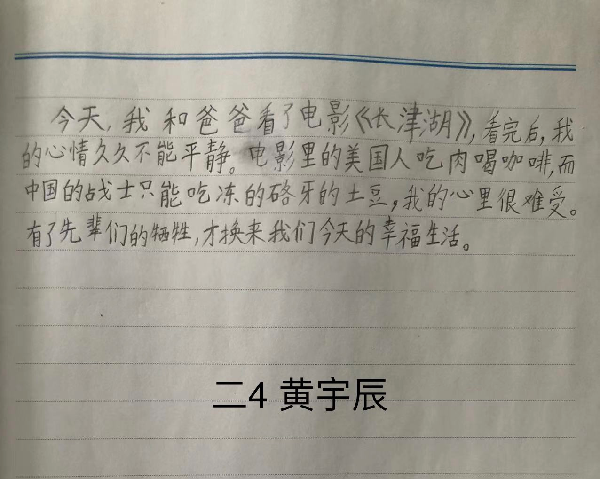 今天,我和爸爸看了电影《长津湖》,看完后,我
的心情久久不能平静。电影里的美国人吃肉喝咖啡,而
中国的战士只能吃冻的硌牙的土豆,我的心里很难受。
有了先辈们的牺牲,才换来我们今天的幸福生活。
二4 黄宇辰